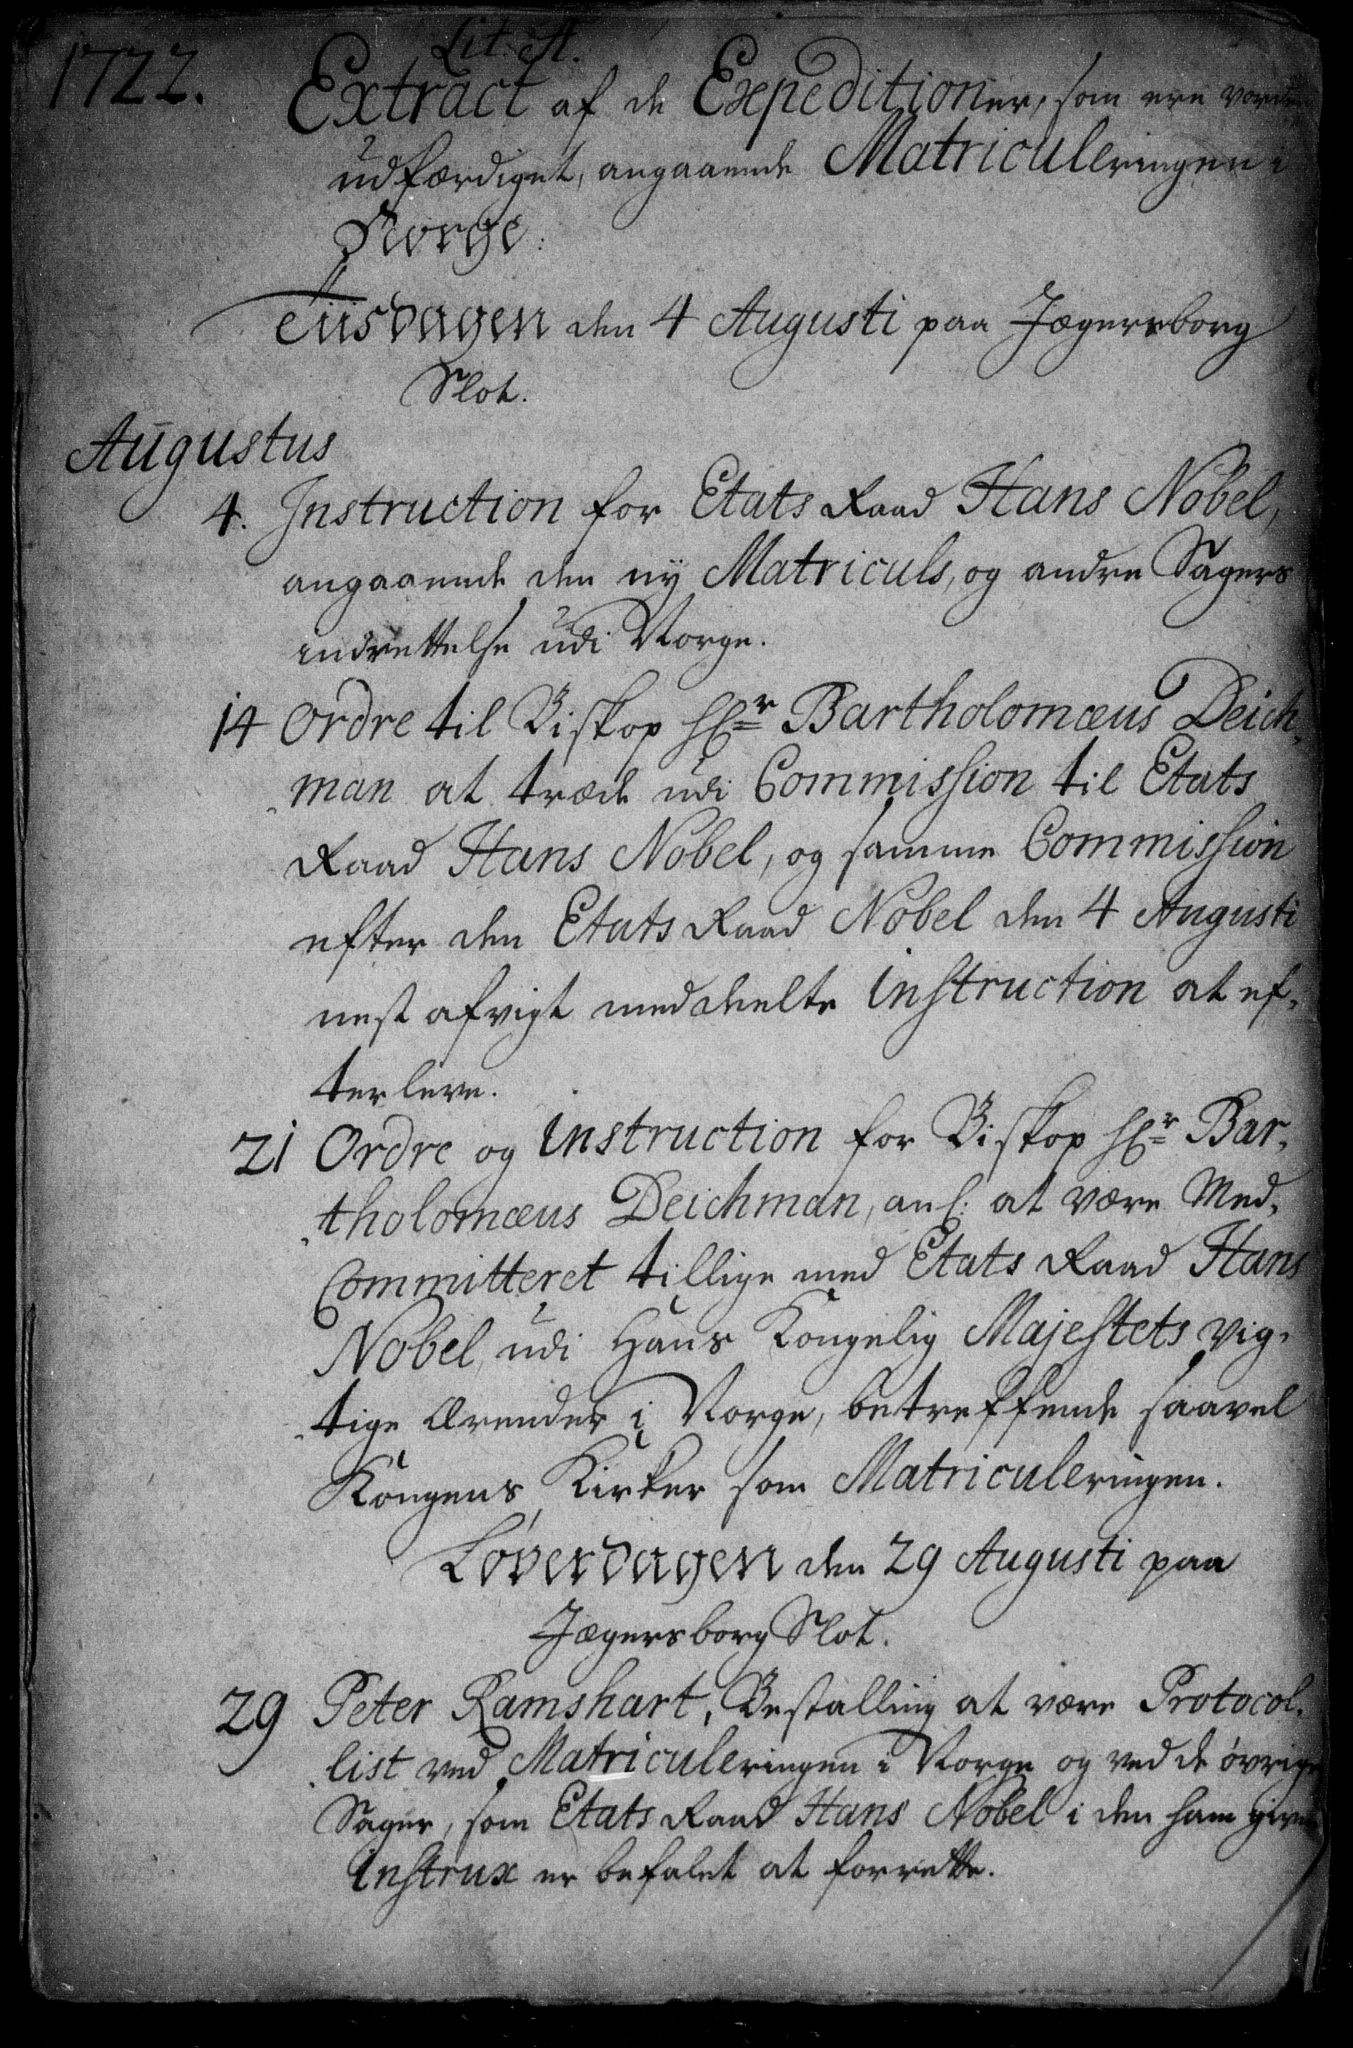 Lit. A.
1722. Extract af de Expeditioner, som ere vorden
udfærdiget, angaaende Matriculeringen i
Norge:
Tiisdagen den 4 Augusti paa Jægersborg
Slot.
Augustus
4. Instruction for Etats Raad Hans Nobel,
angaaende den ny Matriculs, og andre Sagers
indrettelse udi Norge.
14 Ordre til Biskop Hr Bartholomæus Deich,
man at træde udi Commission til Etats
Raad Hans Nobel, og samme Commission
efter den Etats Raad Nobel den 4 Augusti
nest afvigt meddeelte Instruction at ef,
terleve.
21 Ordre og Instruction for Biskop Hr Bar,
tholomæus Deichman, anl: at være Med,
Committeret tillige med Etats Raad Hans
Nobel udi Hans Kongelig Majestets vig,
tige Ærender i Norge, betreffende saavel
Kongens Kirker som Matriculeringen.
Løverdagen den 29 Augusti paa
Jægersborg Slot.
29 Peter Ramshart, Bestalling at være Protocol,
list ved Matriculeringen i Norge og ved de øvrige
Sager, som Etats Raad Hans Nobel i den ham givne
Instrux er befalet at forrette.